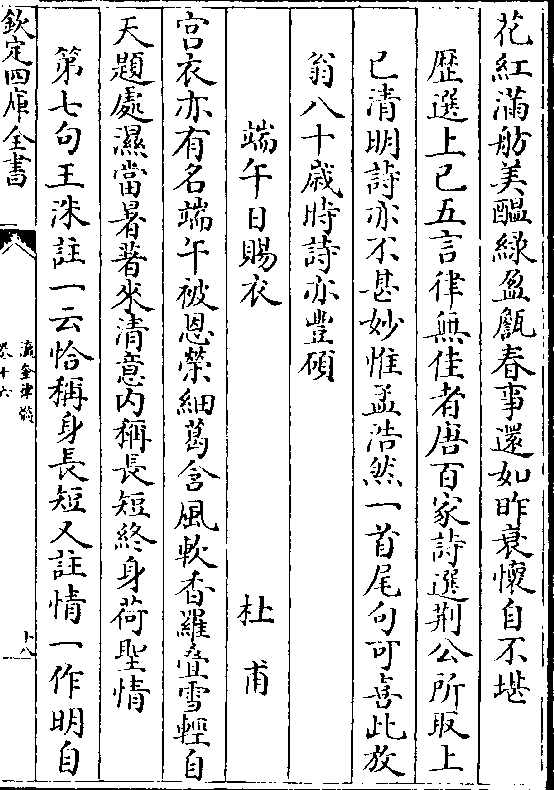 花紅滿舫美醖緑盈甔春事還如昨衰懷自不堪
歴選上巳五言律無佳者唐百家詩選荆公所取上
巳清明詩亦不甚妙惟孟浩然一首尾句可喜此放
翁八十歳時詩亦豐碩
端午日賜衣 杜甫
宫衣亦有名端午被恩榮細葛含風軟香羅疊雪輕自
天題處濕當暑著來清意内稱長短終身荷聖情
第七句王洙註一云恰稱身長短又註情一作明自
欽定四庫全書
瀛奎律髓
卷十六
十八